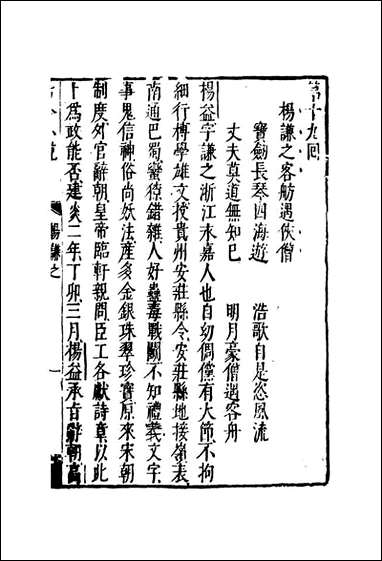 第十九回
楊謙之客舫遇俠僧
寶劍長琴四海遊　浩歌自是恣風流
丈夫莫道無知己　明月豪僧遇客舟
楊益字謙之浙江永嘉人也自幼倜儻有大節不拘
細行博學雄文授貴州安莊縣令安莊縣地接嶺表
南通巴蜀蠻獠錯雜人好蠱毒戰鬭不知禮義文字
事鬼信神俗尚妖法產多金銀珠翠珍寶原來宋朝
制度外官辭朝皇帝臨軒親問臣工各獻詩章以此
卜為政能否建炎二年丁卯三月楊益承旨辭朝高
楊謙之　一